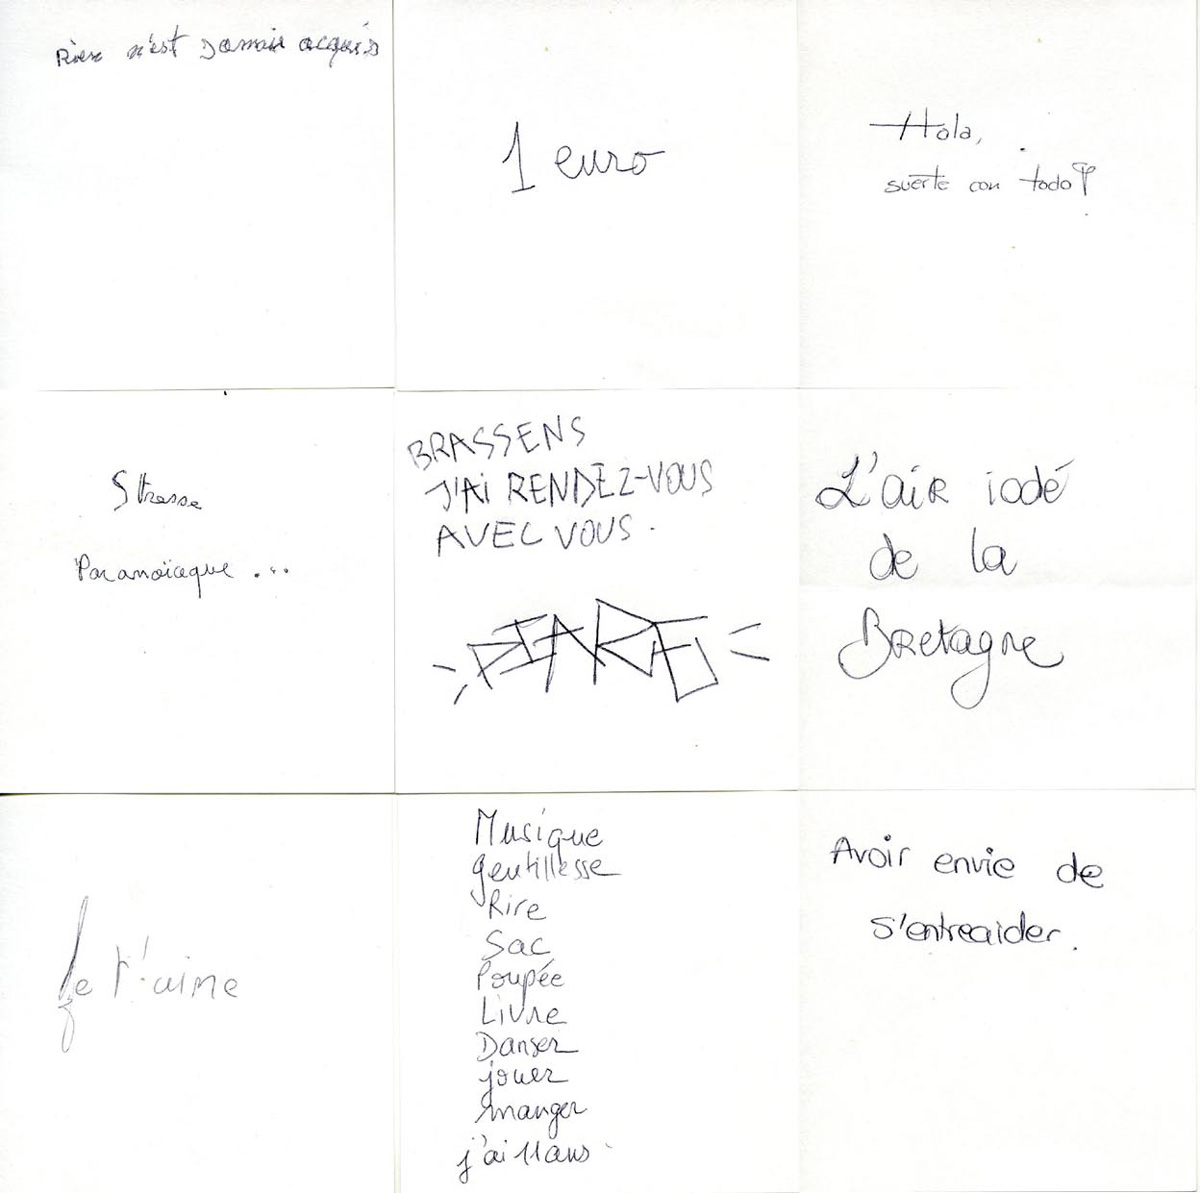 Rien n'est Jamais acquis
1 euro
Hola,
suerte con todo!
Stresse
Paranoïaque ...
BRASSENS
J'AI RENDEZ-VOUS
AVEC VOUS.
L'air iodé
de la
Bretagne
Je t'aime
Musique
gentillesse
Rire
Sac
Poupée
Livre
Danser
jouer
manger
j'ai 11 ans.
Avoir envie de
s'entreaider.